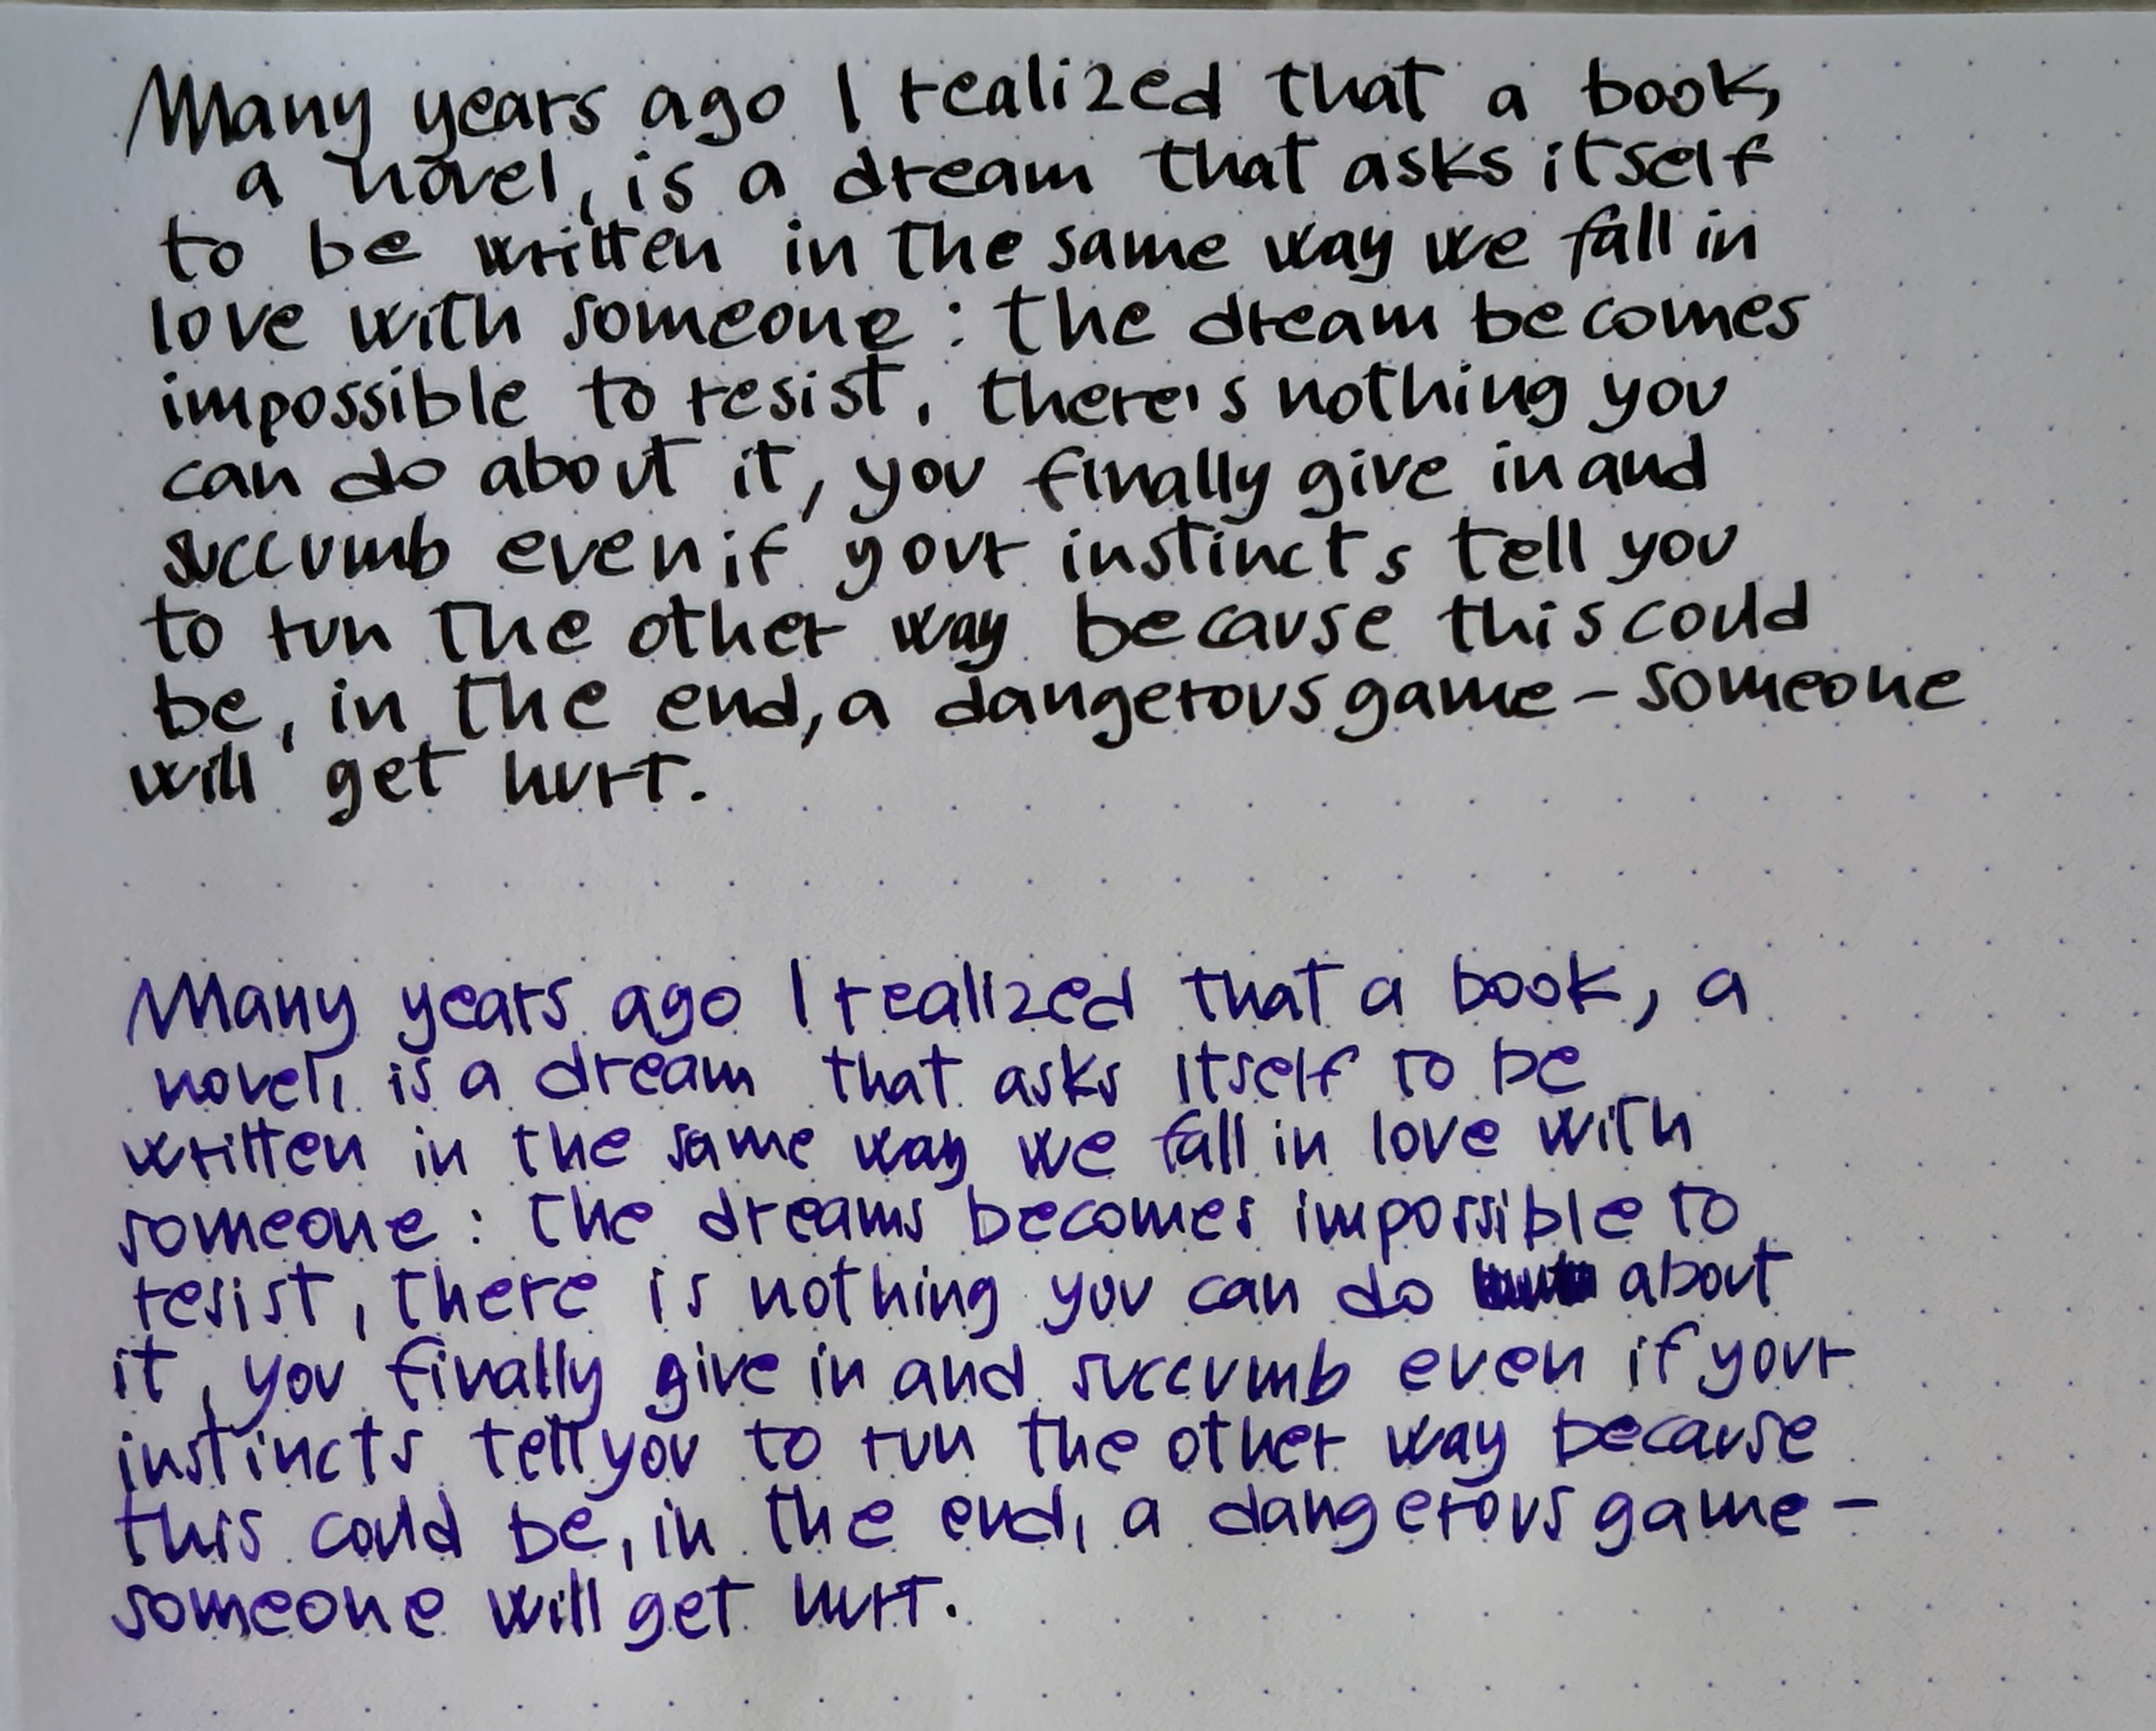 Many years ago I realized that a book,
a novel, is a dream that asks itself
to be written in the same way we fall in
love with someone: the dream becomes
impossible to resist, there's nothing you
can do about it, you finally give in and
succumb even if your instincts tell you
to run the other way because this could
be, in the end, a dangerous game – someone
will get hurt.
Many years ago I realized that a book, a
novel, is a dream that asks itself to be
written in the same way we fall in love with
someone: the dreams becomes impossible to
resist, there is nothing you can do about
it, you finally give in and succumb even if your
instincts tell you to run the other way because
this could be, in the end, a dangerous game –
someone will get hurt.